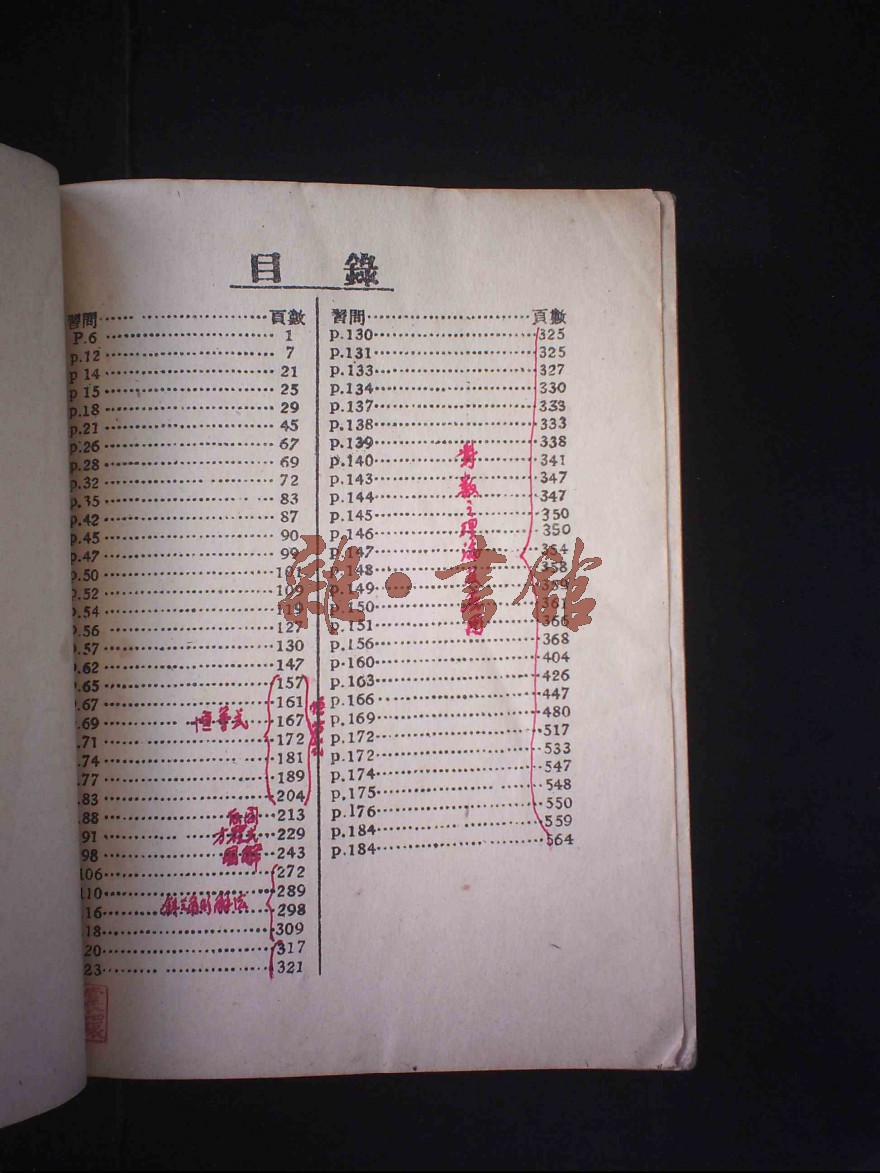 目 錄
習問 頁數
P.6 1
p.12 7
p 14 21
p 15 25
p.18 29
p.21 45
p.26 67
p.28 69
p.32 72
p.35 83
p.42 87
p.45 90
p.47 99
p.50 101
p.52 109
p.54 119
.56 127
.57 130
.62 147
.65 157
.67 161
.69 恒等式 167
.71 172
.74 181
.77 189
.83 204
.88 213
91 方程式 229
98 圖解 243
106 272
110 289
16 斜三角形解法 298
18 309
20 317
23 321
習問 頁數
p.130 325
p.131 325
p.133 327
p.134 330
p.137 333
p.138 333
p.139 338
p.140 341
p.143 347
p.144 347
p.145 350
p.146 350
p.147 354
p.148 358
p.149 359
p.150 361
p.151 366
p.156 368
p.160 404
p.163 426
p.166 447
p.169 480
p.172 517
p.172 533
p.174 547
p.175 548
p.176 550
p.184 559
p.184 564
對數之理論及應用
雜·書館